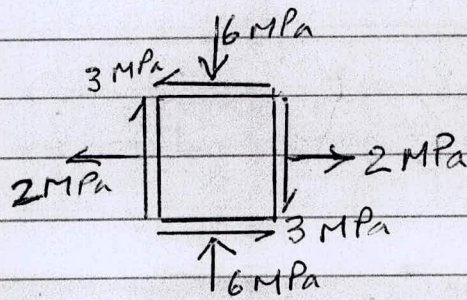 6 MPa
3 MPa
2 MPa
2 MPa
3 MPa
6 MPa